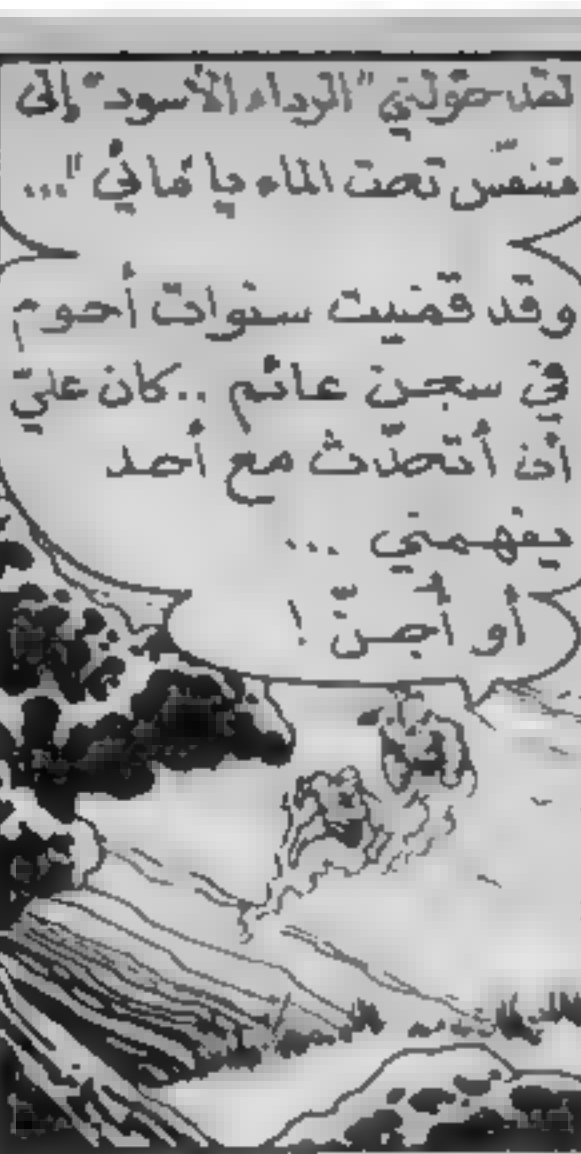 لقد حوّلني "الرداء الأسود" إلى
متنفّس تحت الماء يا مّاني"...
وقد قضيت سنوات أحوم
في سجن عائم .. كان عليّ
أن أتحدّث مع أحد
يفهمني ...
أو أُجنّ !